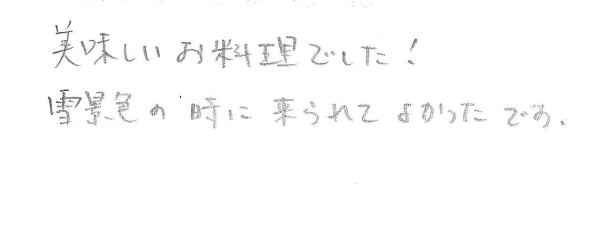 美味しいお料理でした!
雪景色の時に来られてよかったです.